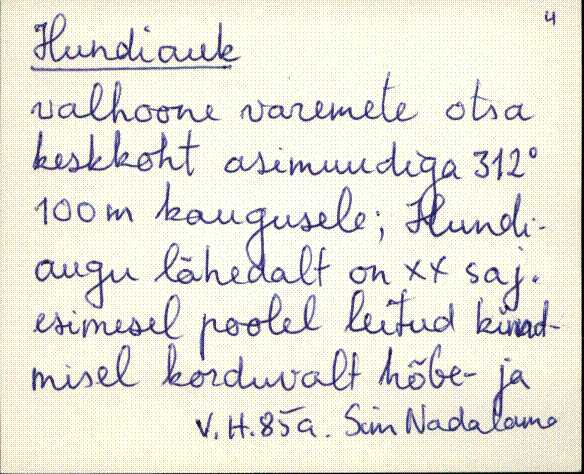 4
Hundiauk
valhoone varemete otsa
keskkoht asimuudiga 312°
100 m kaugusele; Hundi-
augu lähedalt on XX saj.
esimesel poolel leitud künd-
misel korduvalt hõbe- ja
V. H. 85 a. Siin Nadalama